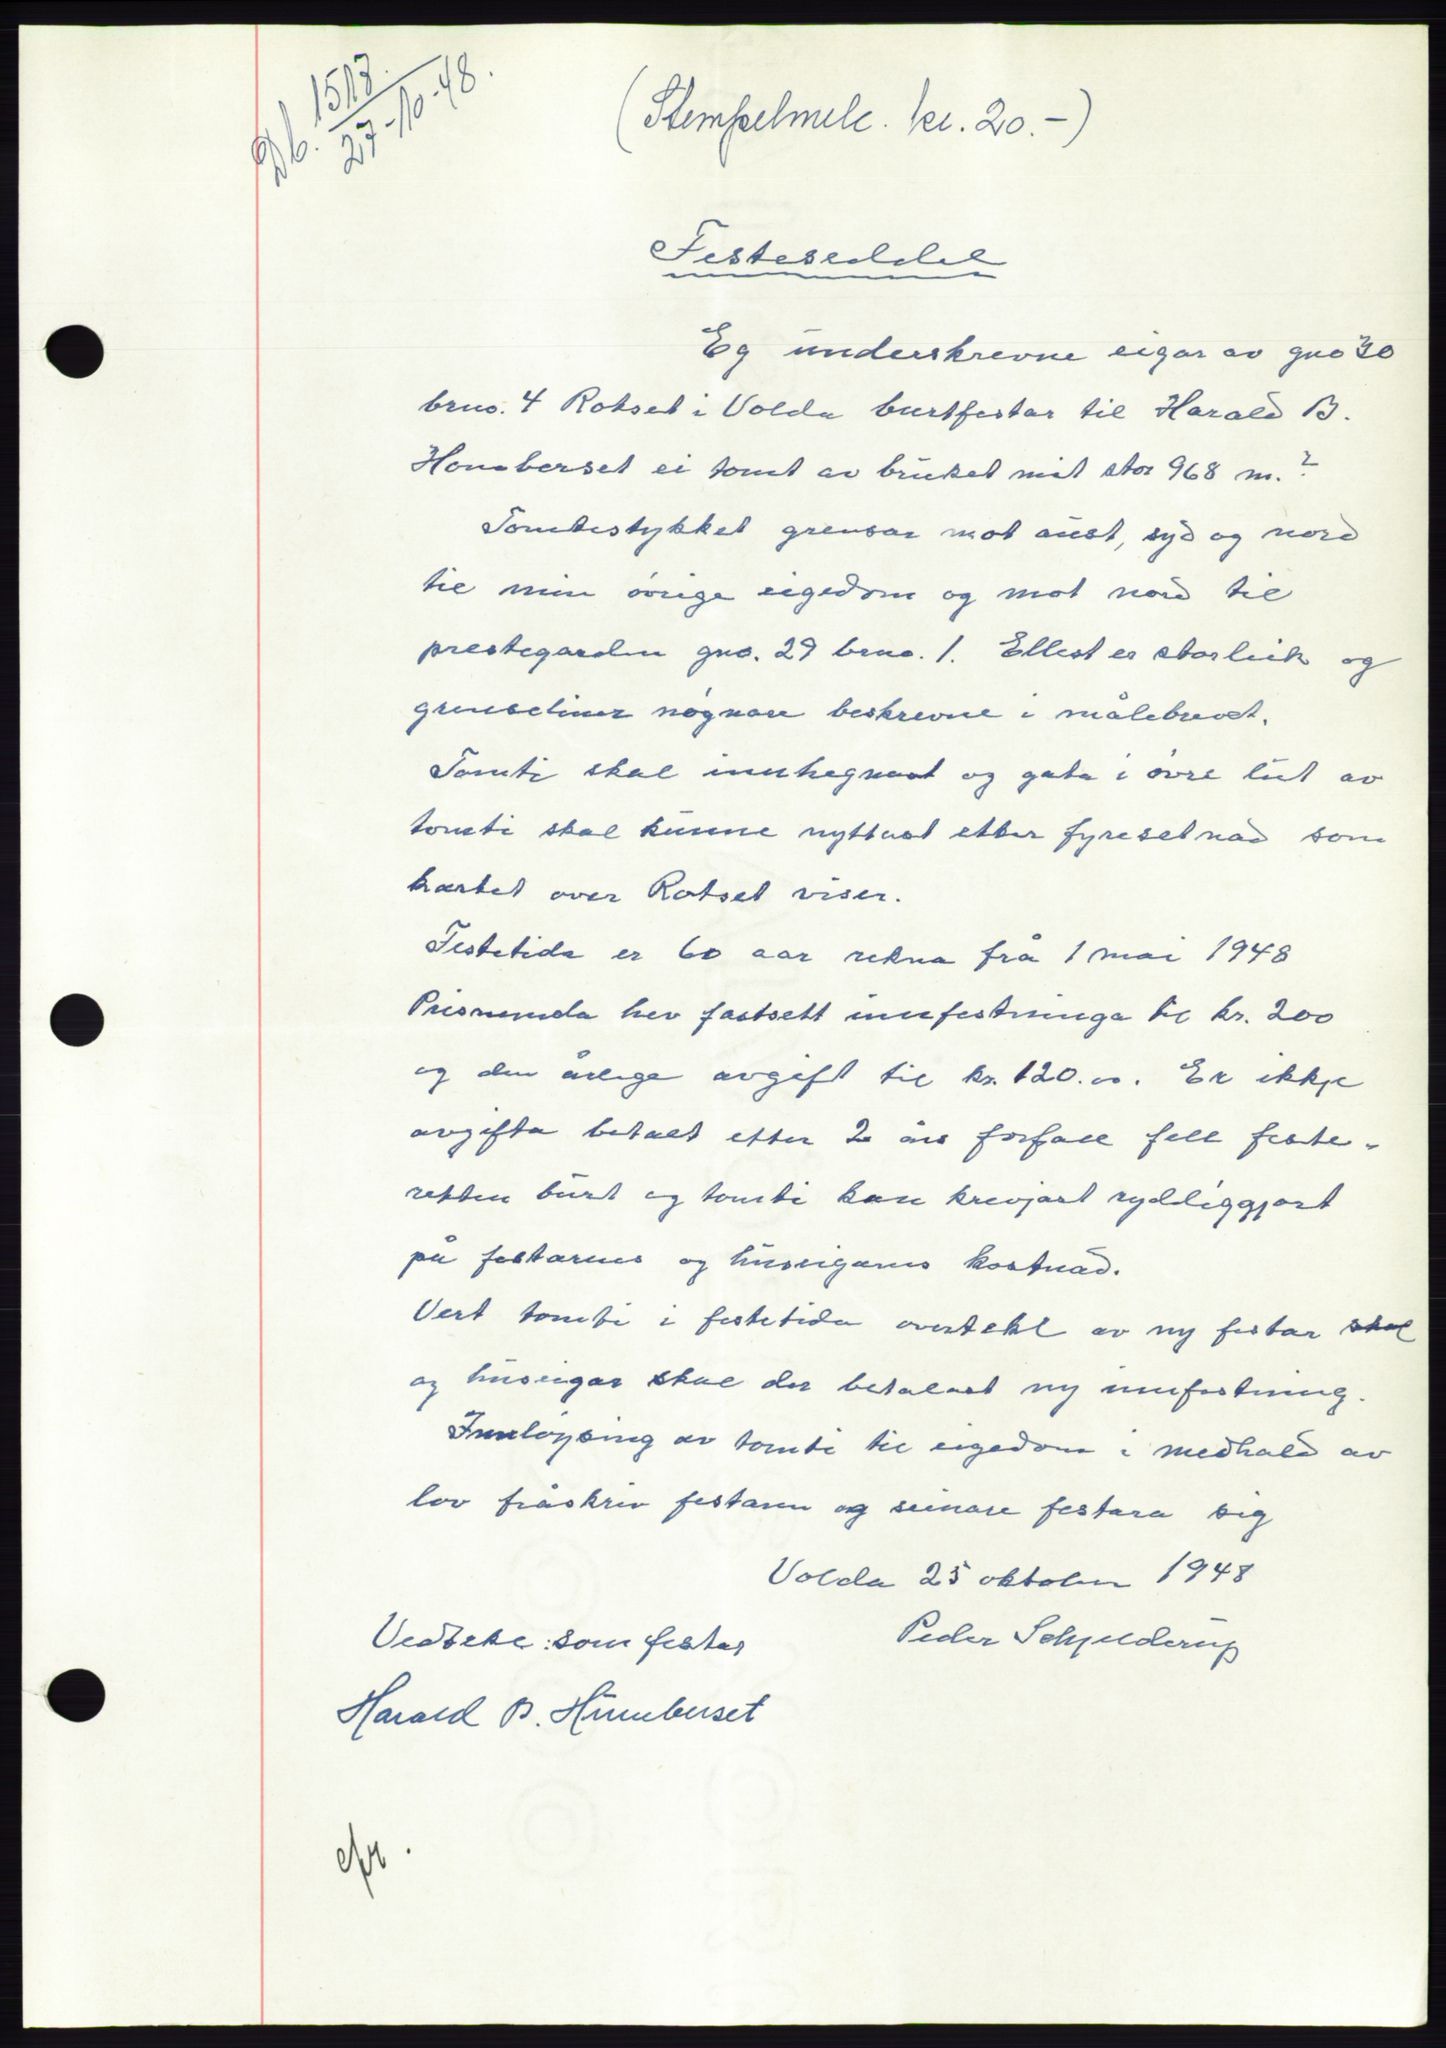 Db. 1517.
27-10-48.
(Stempelmrk. kr. 20.-)
Festeseddel
Eg underskrevne eigar av gno 30
brno. 4 Rotset i Volda burtfestar til Harald B.
Homberset ei tomt av bruket mit stor 968 m.²
Tomtestykket grensar mot aust, syd og nord
til min övrige eigedom og mot nord til
prestegarden gno. 29 brno. 1. Ellest er storleik og
grenseliner nögnare beskrevne i målebrevet.
Tomti skal innhegnast og gata i övre lut av
tomti skal kunne nyttast etter fyresetnad som
kartet over Rotset viser.
Festetida er 60 aar rekna frå 1 mai 1948
Prisnemda hev fastsett innfestninga til kr. 200
og den årlege avgift til kr. 120.00. Er ikkje
avgifta betalt etter 2 års forfall fell feste-
retten burt og tomti kan krevjast ryddiggjort
på festarens og huseigarens kostnad.
Vert tomti i festetida overtekt av ny festar skal
og huseigar skal der betalast ny innfestning.
Innlöysing av tomti til eigedom i medhald av
lov fråskriv festaren og seinare festara sig
Volda 25 oktober 1948
Vedteke: som festar Peder Schjelderup
Harald B. Humberset